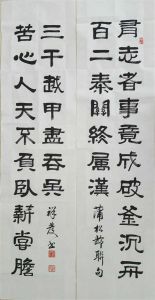 有志者事竟成破釜沉舟
百二秦關終屬漢
蒲松齡聯句
苦心人天不負臥薪嘗膽
三千越甲盡吞吳